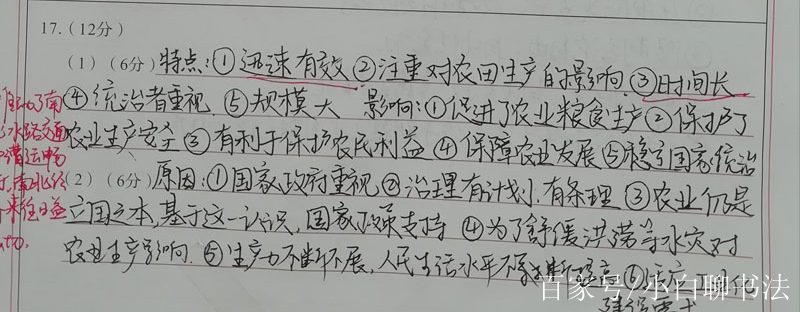 17.(12分)
(1)(6分)特点:①迅速有效②注重对农田生产的影响.③时间长
④统治者重视.⑤规模大 影响:①促进了农业粮食生产②保护了
农业生产安全③有利于保护农民利益④保障农业发展⑤稳定国家统治
(2)(6分)原因:①国家政府重视②治理有计划.有条理③农业仍是
立国之本,基于这一认识,国家政策支持④为了舒缓洪涝等水灾对
农业生产影响.⑤生产力不断发展,人民生活水平不断提高⑥
工业化
建设需求
了南
水路交通
漕运畅
南北经
来往日益
百家号/小白聊书法